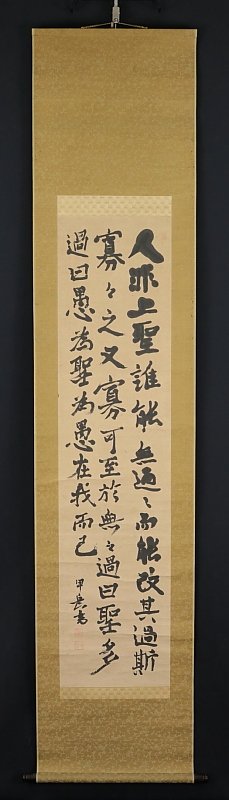 人非上聖誰能無過々而能改其過斯
寡々之又寡可至於無々過曰聖多
過曰愚為聖為愚在我而已
甲長書